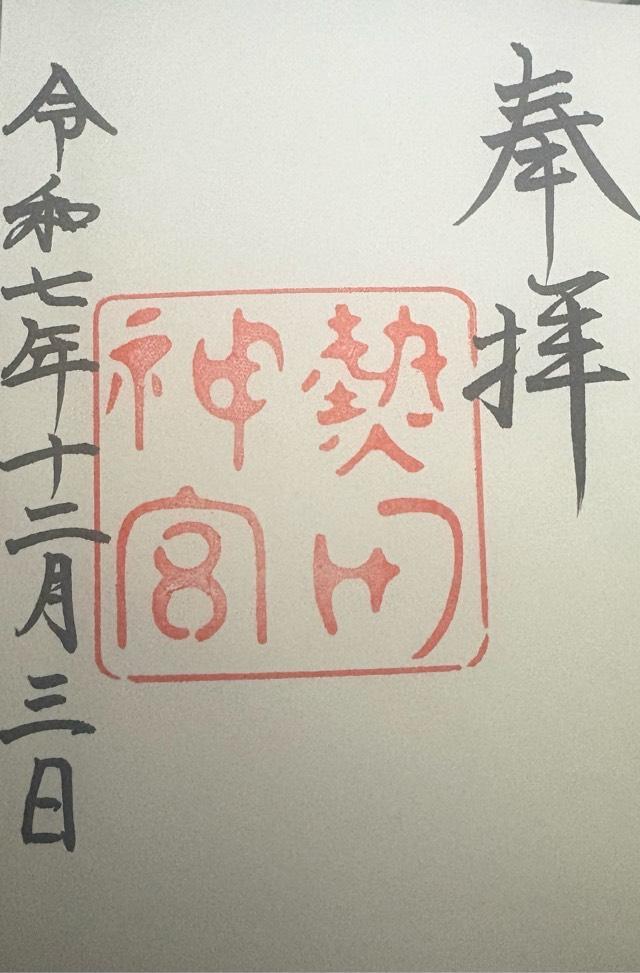 奉拝
熱田
神宮
令和七年十二月三日